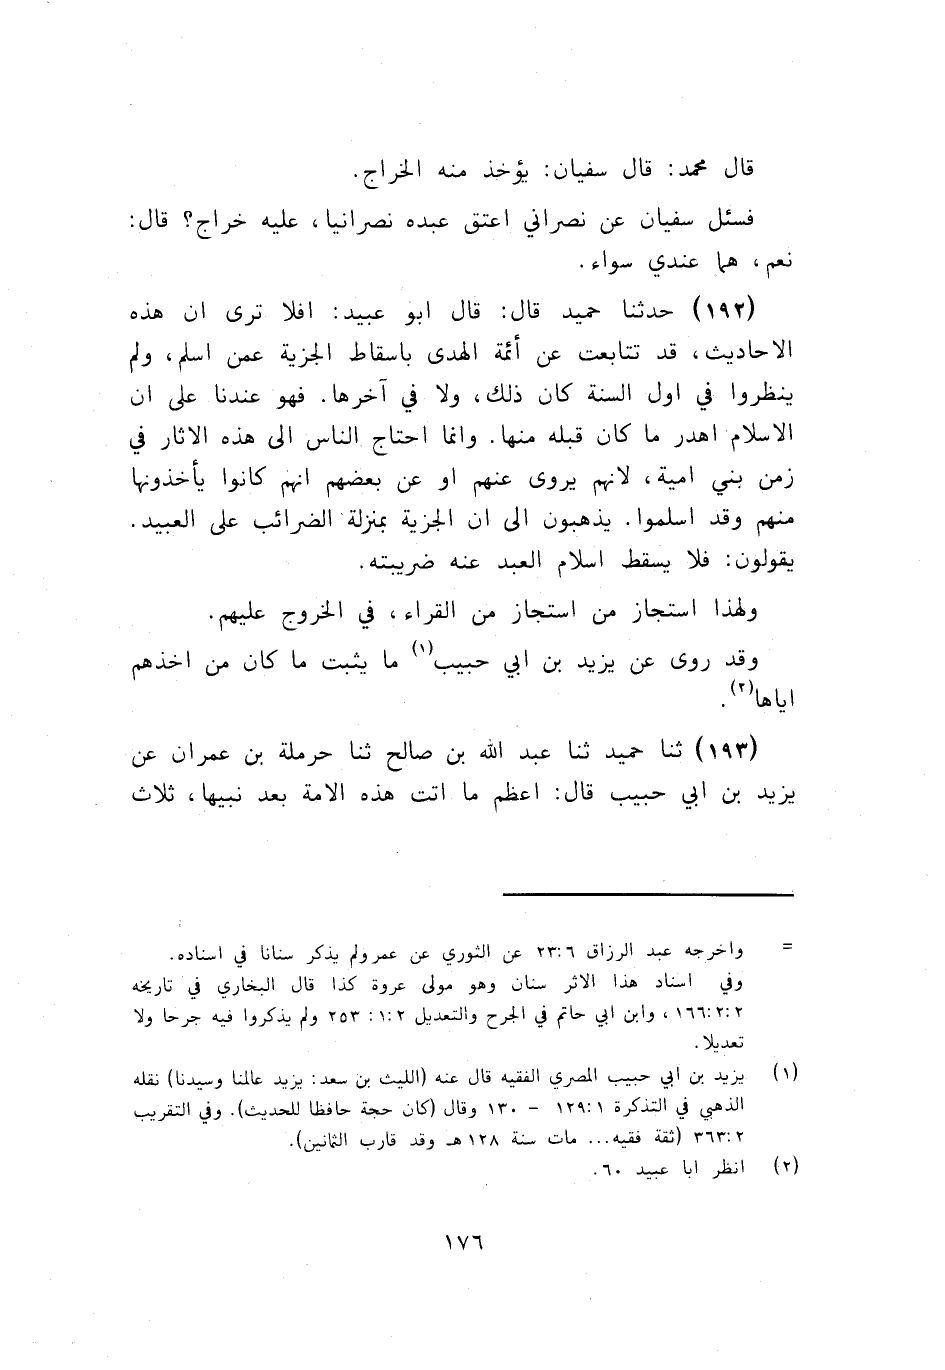 قال محمد: قال سفيان: يؤخذ منه الخراج.
فسئل سفيان عن نصراني اعتق عبده نصرانيا، عليه خراج؟ قال:
نعم، هما عندي سواء.
(١٩٢) حدثنا حميد قال: قال ابو عبيد: افلا ترى ان هذه
الاحاديث، قد تتابعت عن أئمة الهدى باسقاط الجزية عمن اسلم، ولم
ينظروا في اول السنة كان ذلك، ولا في آخرها. فهو عندنا على ان
الاسلام اهدر ما كان قبله منها. وانما احتاج الناس الى هذه الاثار في
زمن بني امية، لانهم يروى عنهم او عن بعضهم انهم كانوا يأخذونها
منهم وقد اسلموا. يذهبون الى ان الجزية بمنزلة الضرائب على العبيد.
يقولون: فلا يسقط اسلام العبد عنه ضريبته.
ولهذا استجاز من استجاز من القراء، في الخروج عليهم.
وقد روى عن يزيد بن ابي حبيب(١) ما يثبت ما كان من اخذهم
اياها(٢).
(١٩٣) ثنا حميد ثنا عبد الله بن صالح ثنا حرملة بن عمران عن
يزيد بن ابي حبيب قال: اعظم ما اتت هذه الامة بعد نبيها، ثلاث
= واخرجه عبد الرزاق ٢٣:٦ عن الثوري عن عمر ولم يذكر سنانا في اسناده.
وفي اسناد هذا الاثر سنان وهو مولى عروة كذا قال البخاري في تاريخه
١٦٦:٢:٢، وابن ابي حاتم في الجرح والتعديل ١:٢: ٢٥٣ ولم يذكروا فيه جرحا ولا
تعديلا.
(١) يزيد بن ابي حبيب المصري الفقيه قال عنه (الليث بن سعد: يزيد عالمنا وسيدنا) نقله
الذهبي في التذكرة ١٢٩:١ – ١٣٠ وقال (كان حجة حافظا للحديث). وفي التقريب
٣٦٣:٢ (ثقة فقيه... مات سنة ١٢٨هـ وقد قارب الثمانين).
(٢) انظر ابا عبيد ٦٠.
١٧٦